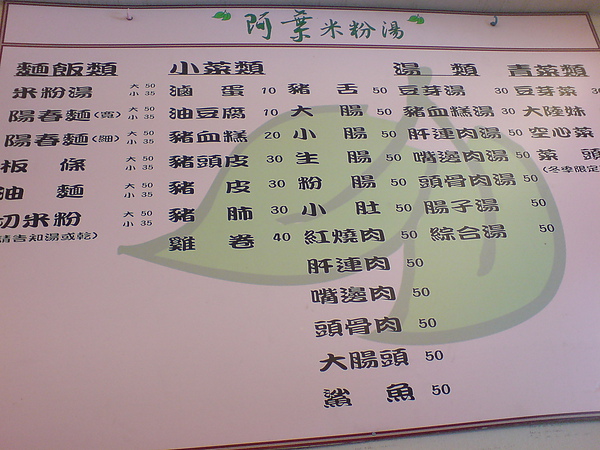 阿葉米粉湯
麵飯類
米粉湯 大 50 小 35
陽春麵(寬) 大 50 小 35
陽春麵(細) 大 50 小 35
板條 大 50 小 35
油麵 大 50 小 35
切米粉 大 50 小 35
請告知湯或乾)
小菜類
滷蛋 10
油豆腐 10
豬血糕 20
豬頭皮 30
豬皮 30
豬肺 30
雞卷 40
豬舌 50
大腸 50
小腸 50
生腸 50
粉腸 50
小肚 50
紅燒肉 50
肝連肉 50
嘴邊肉 50
頭骨肉 50
大腸頭 50
鯊魚 50
湯類
豆芽湯 30
豬血糕湯 30
肝連肉湯 50
嘴邊肉湯 50
頭骨肉湯 50
腸子湯 50
綜合湯 50
青菜類
豆芽菜 30
大陸妹
空心菜
菜頭
(冬季限定)